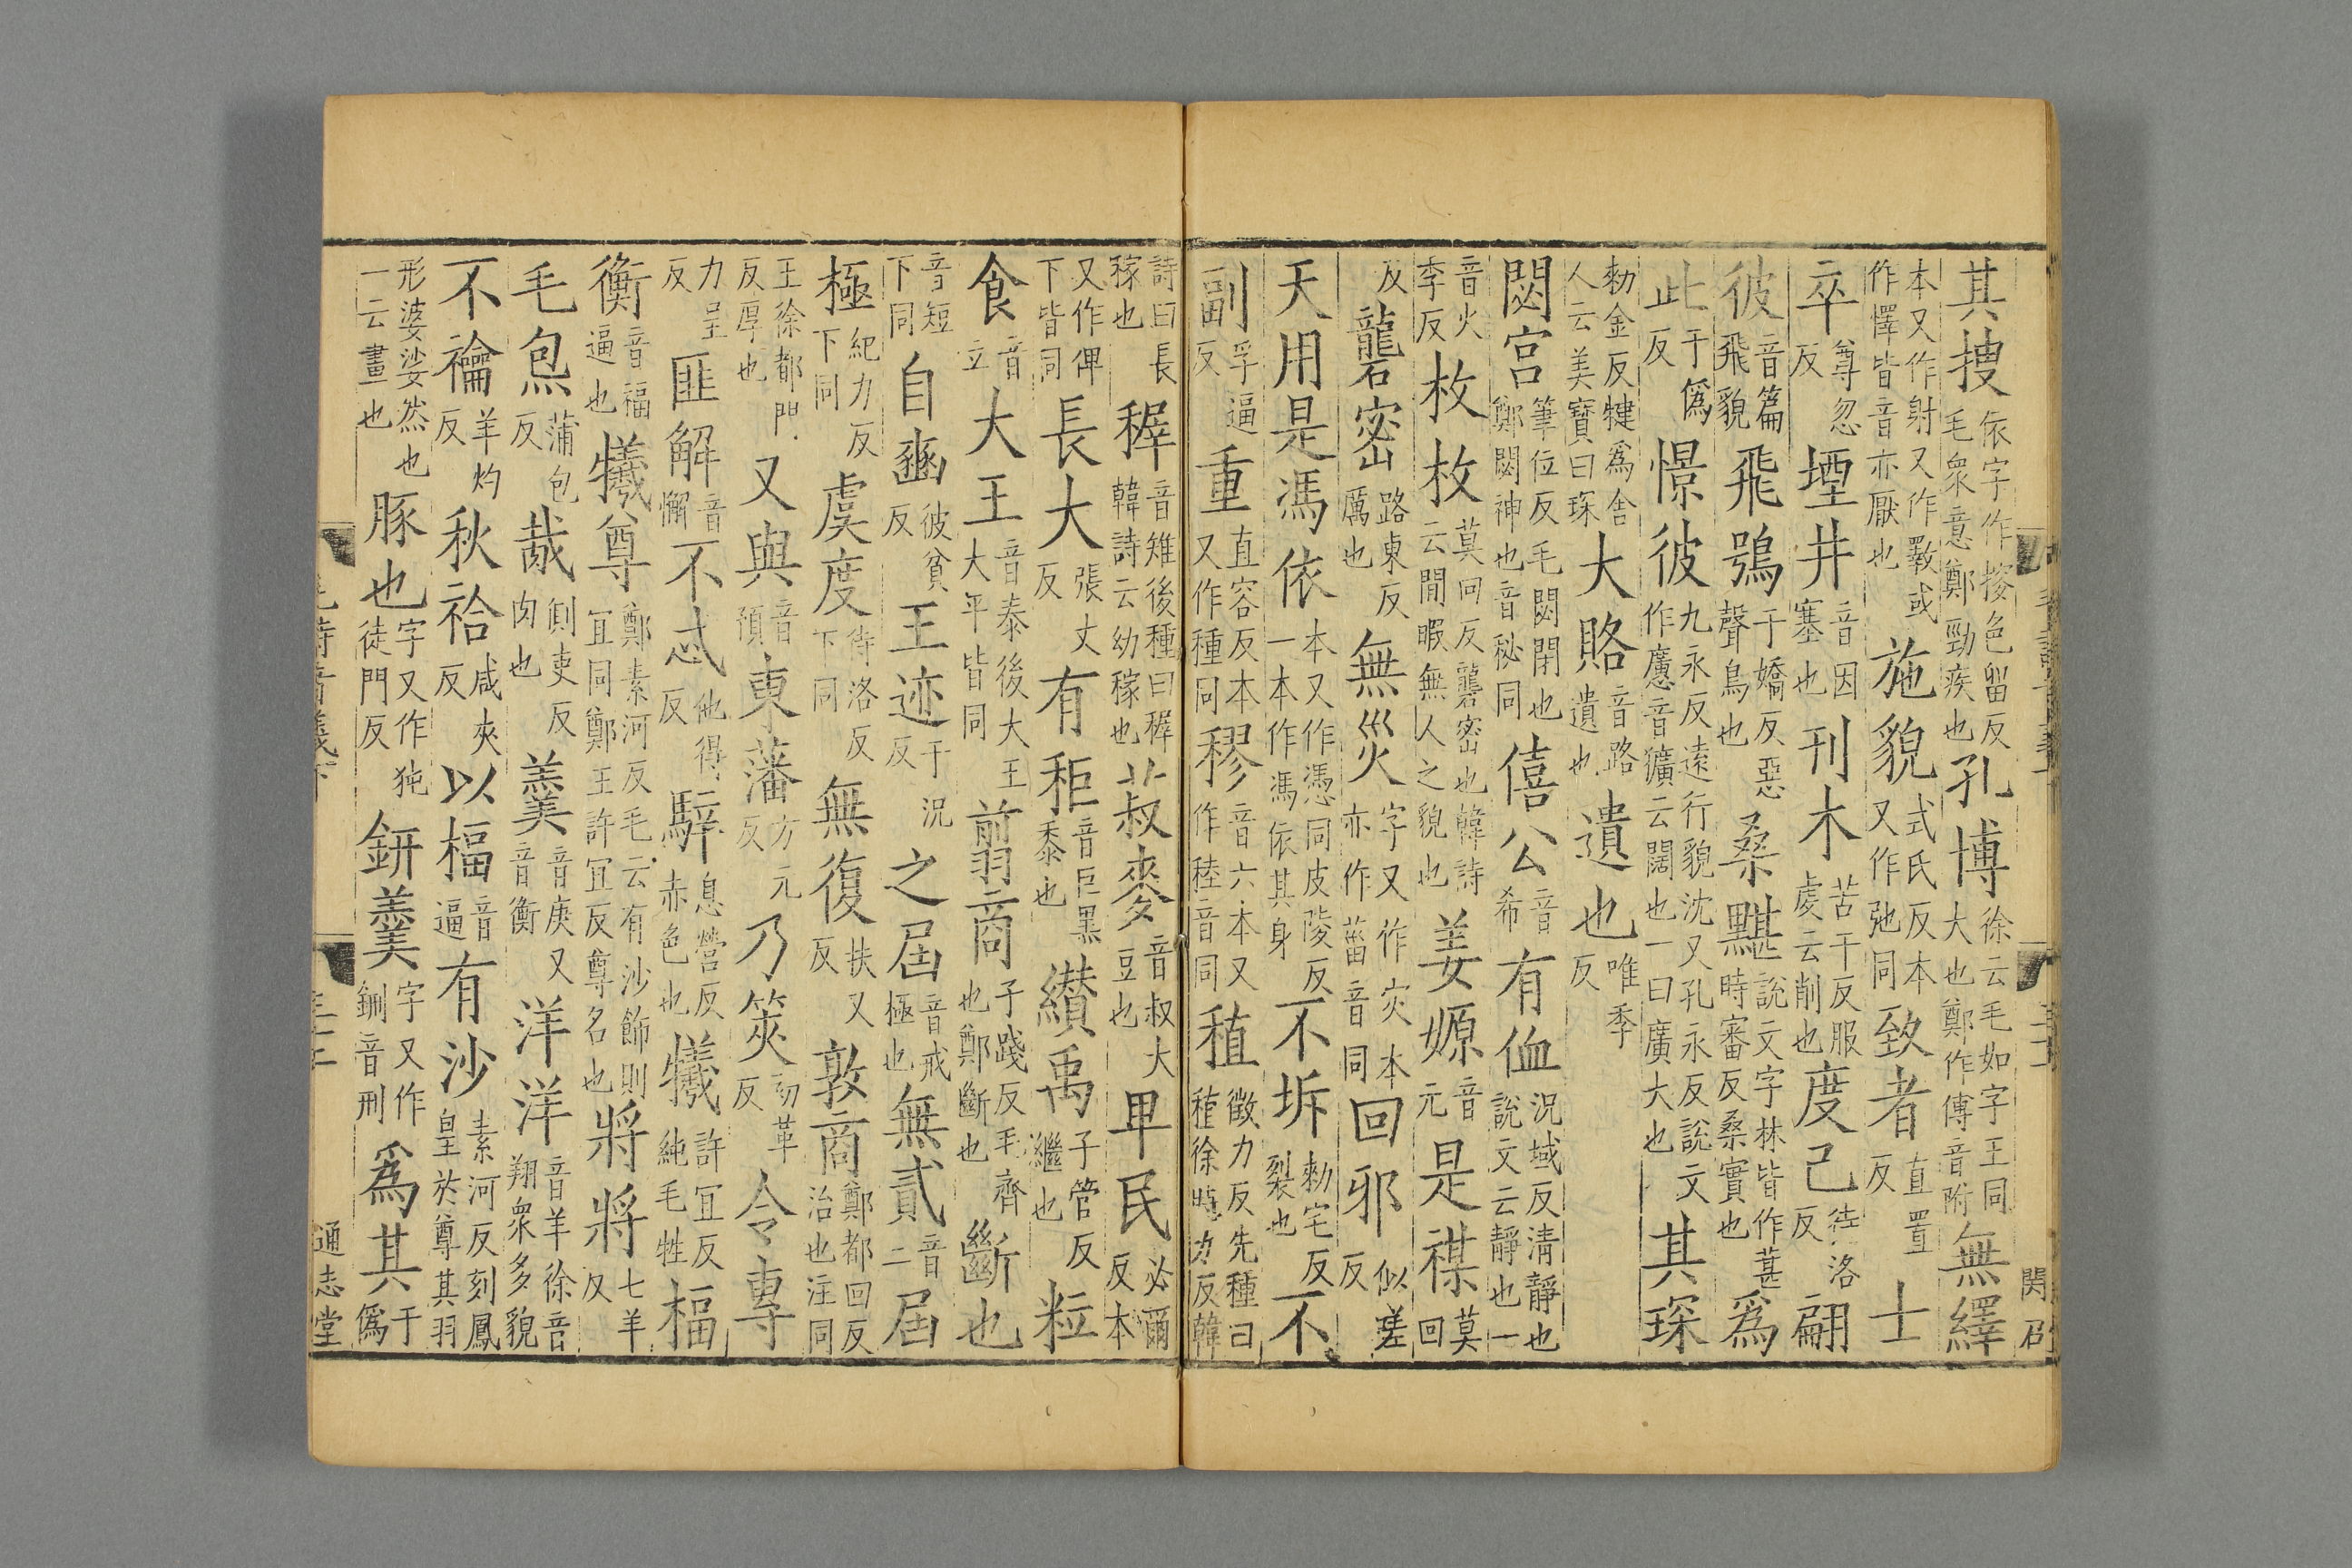 其搜依字作摉色留反毛衆意鄭勁疾也孔博徐云毛如字王同大也鄭作傅音附無繹
本又作射又作斁或作懌皆音亦厭也施貌式氏反本又作弛同致者直置反士
卒尊忽反堙井音因塞也刊木苦干反服虔云削也度己待洛反翩
彼音篇飛貌飛鴞于嬌反惡聲鳥也桑黮說文字林皆作葚時審反桑實也爲
此于僞反憬彼九永反遠行貌沈又孔永反說文作懬音獷云闊也一曰廣大也其琛
勑金反犍爲舍人云美寶曰琛大賂音路遺也遺也唯季反
閟宮筆位反毛閟閉也鄭閟神也音秘同僖公音希有侐況域反清靜也說文云靜也一
音火季反枚枚莫回反礱密也韓詩云閒暇無人之貌也姜嫄音元是禖莫回
反礱密路東反厲也無災字又作灾本亦作菑音同回邪似嗟反
天用是馮依本又作憑同皮陵反一本作馮依其身不坼勑宅反裂也不
副孚逼反重直容反本又作種同穋音六本又作稑音同稙徵力反先種曰稙徐時力反韓
詩曰長稼也稺音雉後種曰稺韓詩云幼稼也菽麥音叔大豆也俾民必爾反本
又作俾下皆同長大張丈反有秬音巨黑黍也纘禹子管反繼也粒
食音立大王音泰後大王大平皆同翦商子踐反毛齊也鄭斷也斷也
音短下同自豳彼貧反王迹于況反之屆音戒極也無貳音二屆
極紀力反下同虞度待洛反下同無復扶又反敦商鄭都回反治也注同
王徐都門反厚也又與音預東藩方元反乃筴初革反令專
力呈反匪解音懈不忒他得反騂息營反赤色也犧許宜反純毛牲楅
衡音福逼也犧尊鄭素河反毛云有沙飾則宜同鄭王許宜反尊名也將將七羊反
毛炰蒲包反胾側吏反肉也羹音庚又音衡洋洋音羊徐音翔衆多貌
不禴羊灼反秋祫咸夾反以楅音逼有沙素河反刻鳳皇於尊其羽
形婆娑然也一云畫也豚也字又作㹠徒門反鈃羹字又作鉶音刑爲其于僞
通志堂